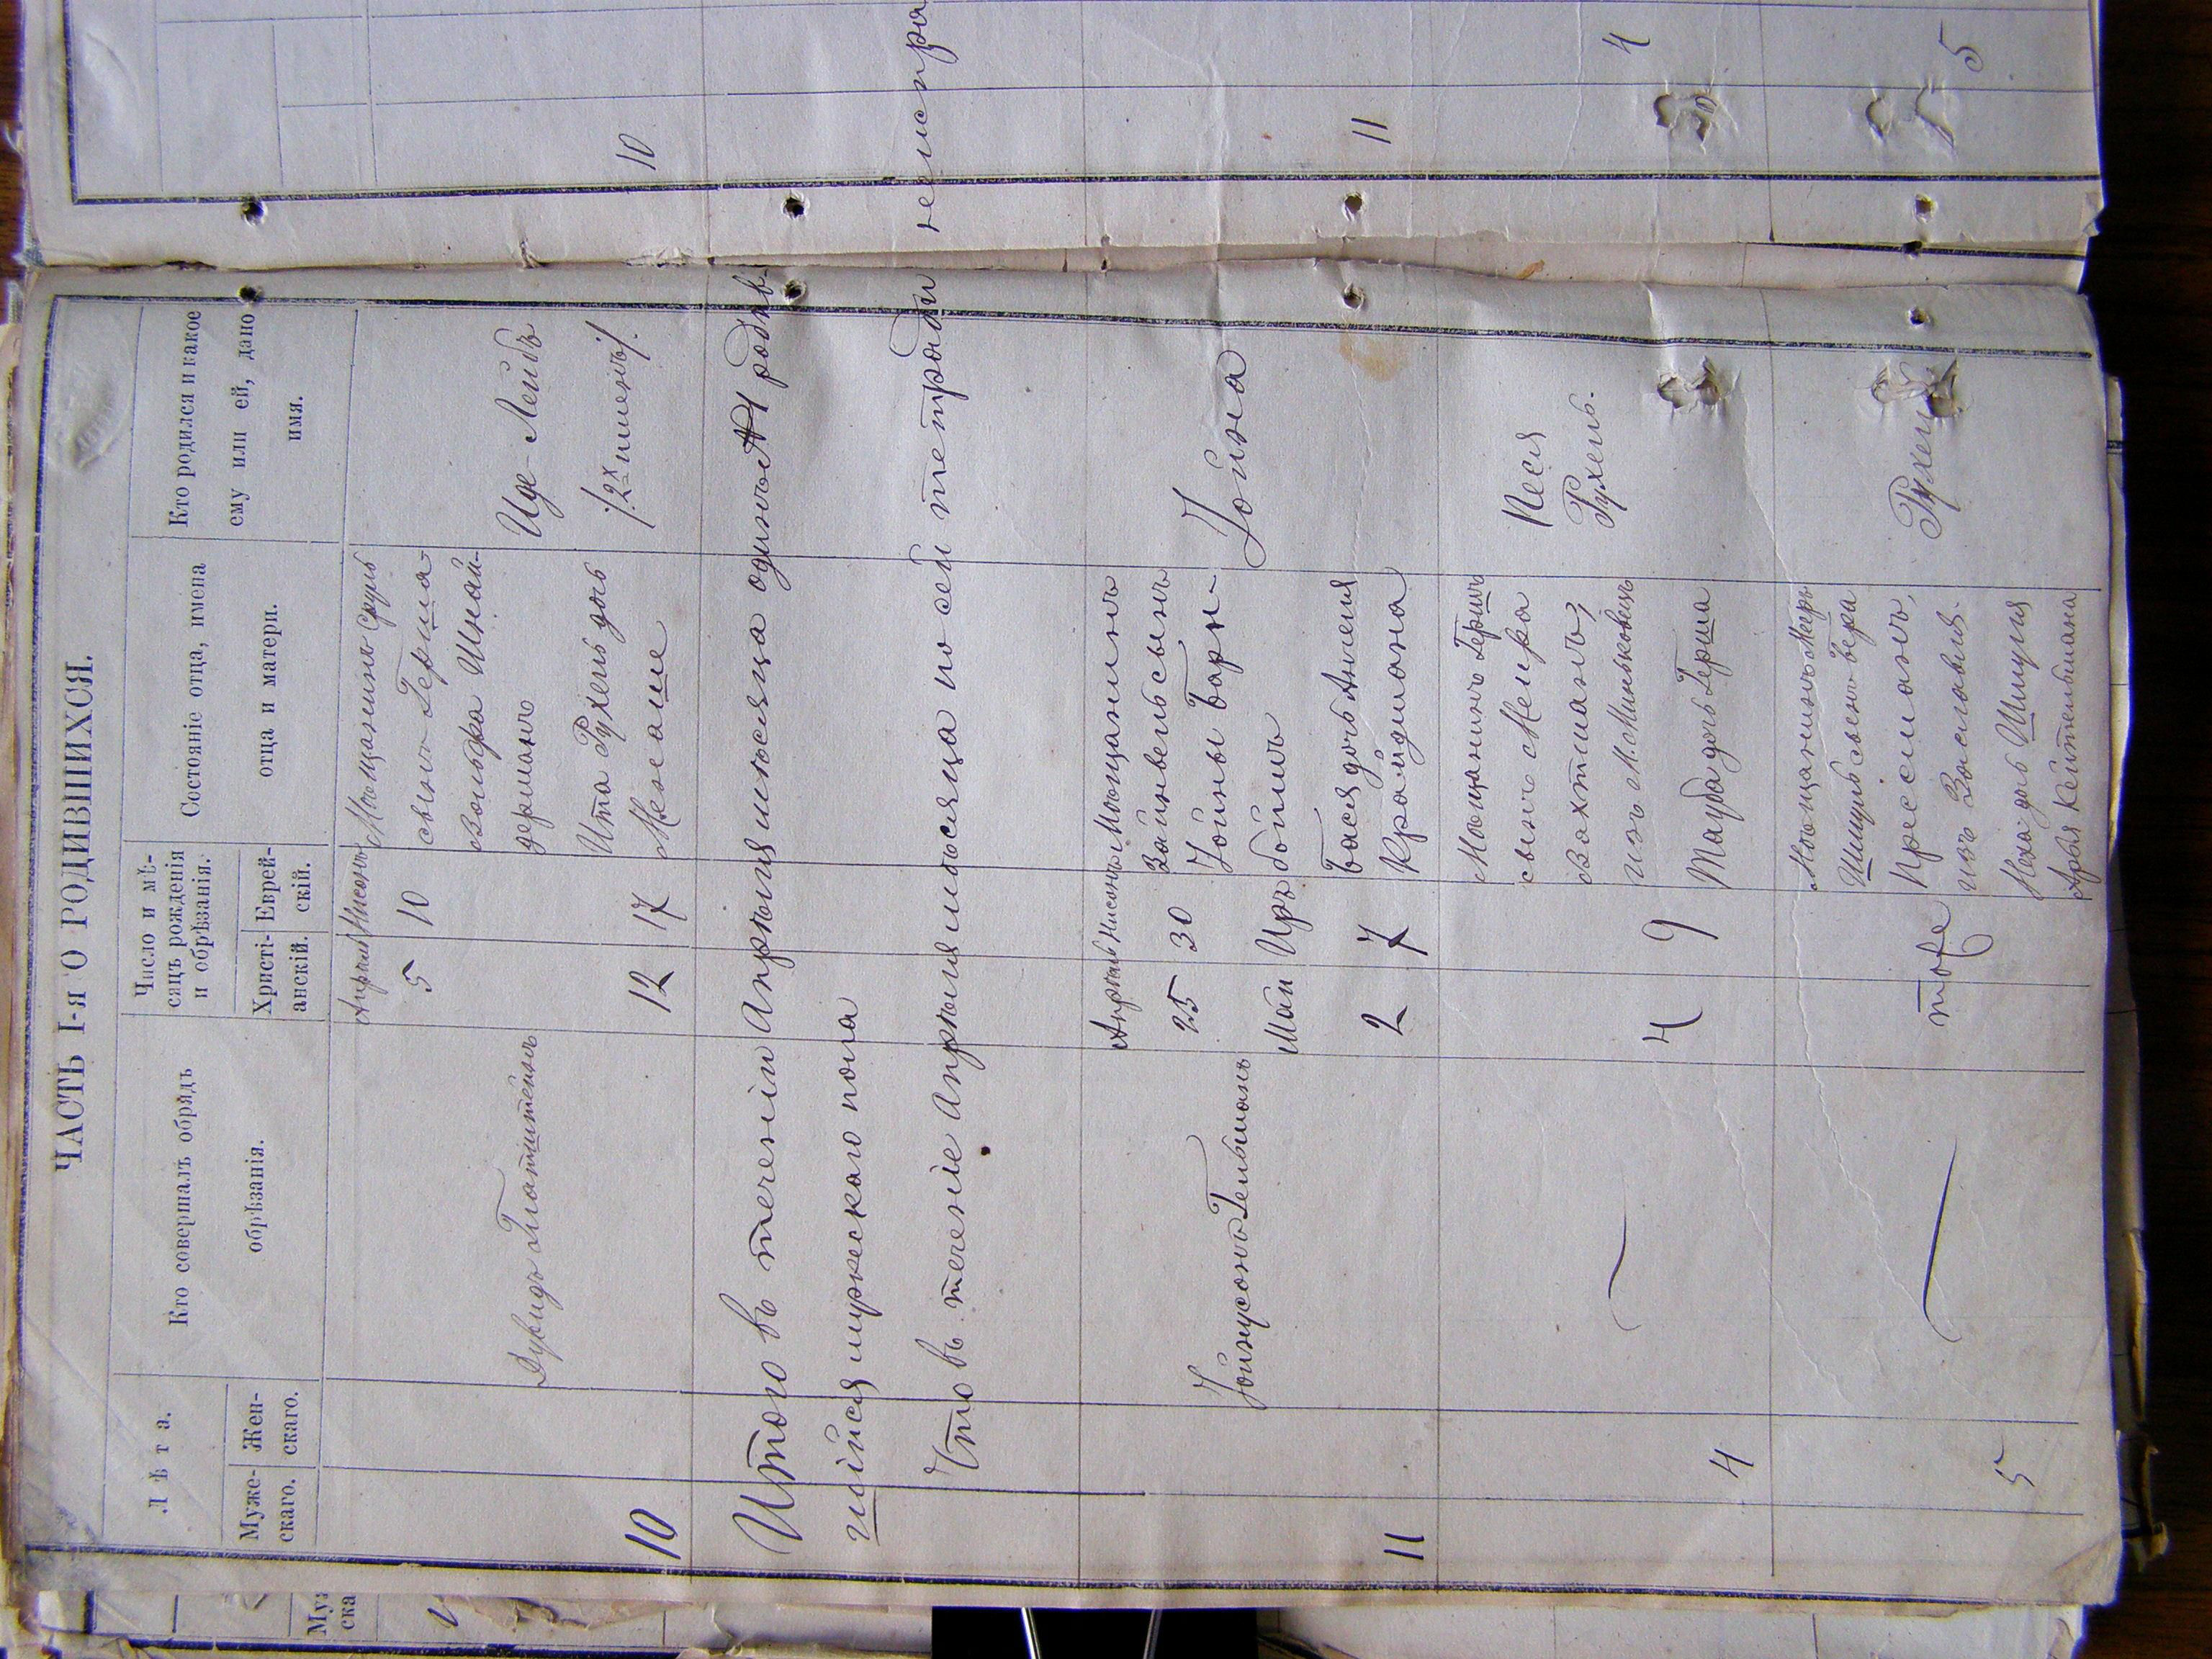 ЧАСТЬ I-я О РОДИВШИХСЯ.
Л ѣ т а.
Муже-
скаго.
Жен-
скаго.
Кто совершалъ обрядъ
обрѣзанія.
Число и мѣ-
сяцъ рожденія
и обрѣзанія.
Христі-
анскій.
Еврей-
скій.
Состояніе отца, имена
отца и матери.
Кто родился и какое
ему или ей, дано
имя.
10
Дувидъ Глатштейнъ
Апрѣль Нисонъ
5 10
12 17
Мѣщанинъ Сруль
сынъ Герша
Вольфа Шнай-
дерманъ
Ита Рухель дочь
Менаше
Иде-Лейбъ
/2х именъ/.
10
Итого въ теченіи Апрѣля мѣсяца одинъ родив-
шійся мужескаго пола
Что въ теченіе Апрѣля мѣсяца по сей тетради
неиспра
11
Апрѣль Нисонъ
25 30
Май Иръ
2 7
Мѣщанинъ
Зайнвель сынъ
Йойны Бары-
бойнъ
Бася дочь Аншеля
Крайдмана
Йойна
11
4
4 9
Мѣщанинъ Гершъ
сынъ Мейра
Вахтманъ,
изъ Миньковецъ
Тауба дочь Герша
Песя
Рухель.
4
5
тоже
Мѣщанинъ Мееръ
Шмуль сынъ Бера
Пресманъ,
изъ Заславля.
Неха дочь Шмуля
Арья Кейтельмана
Рухель
5